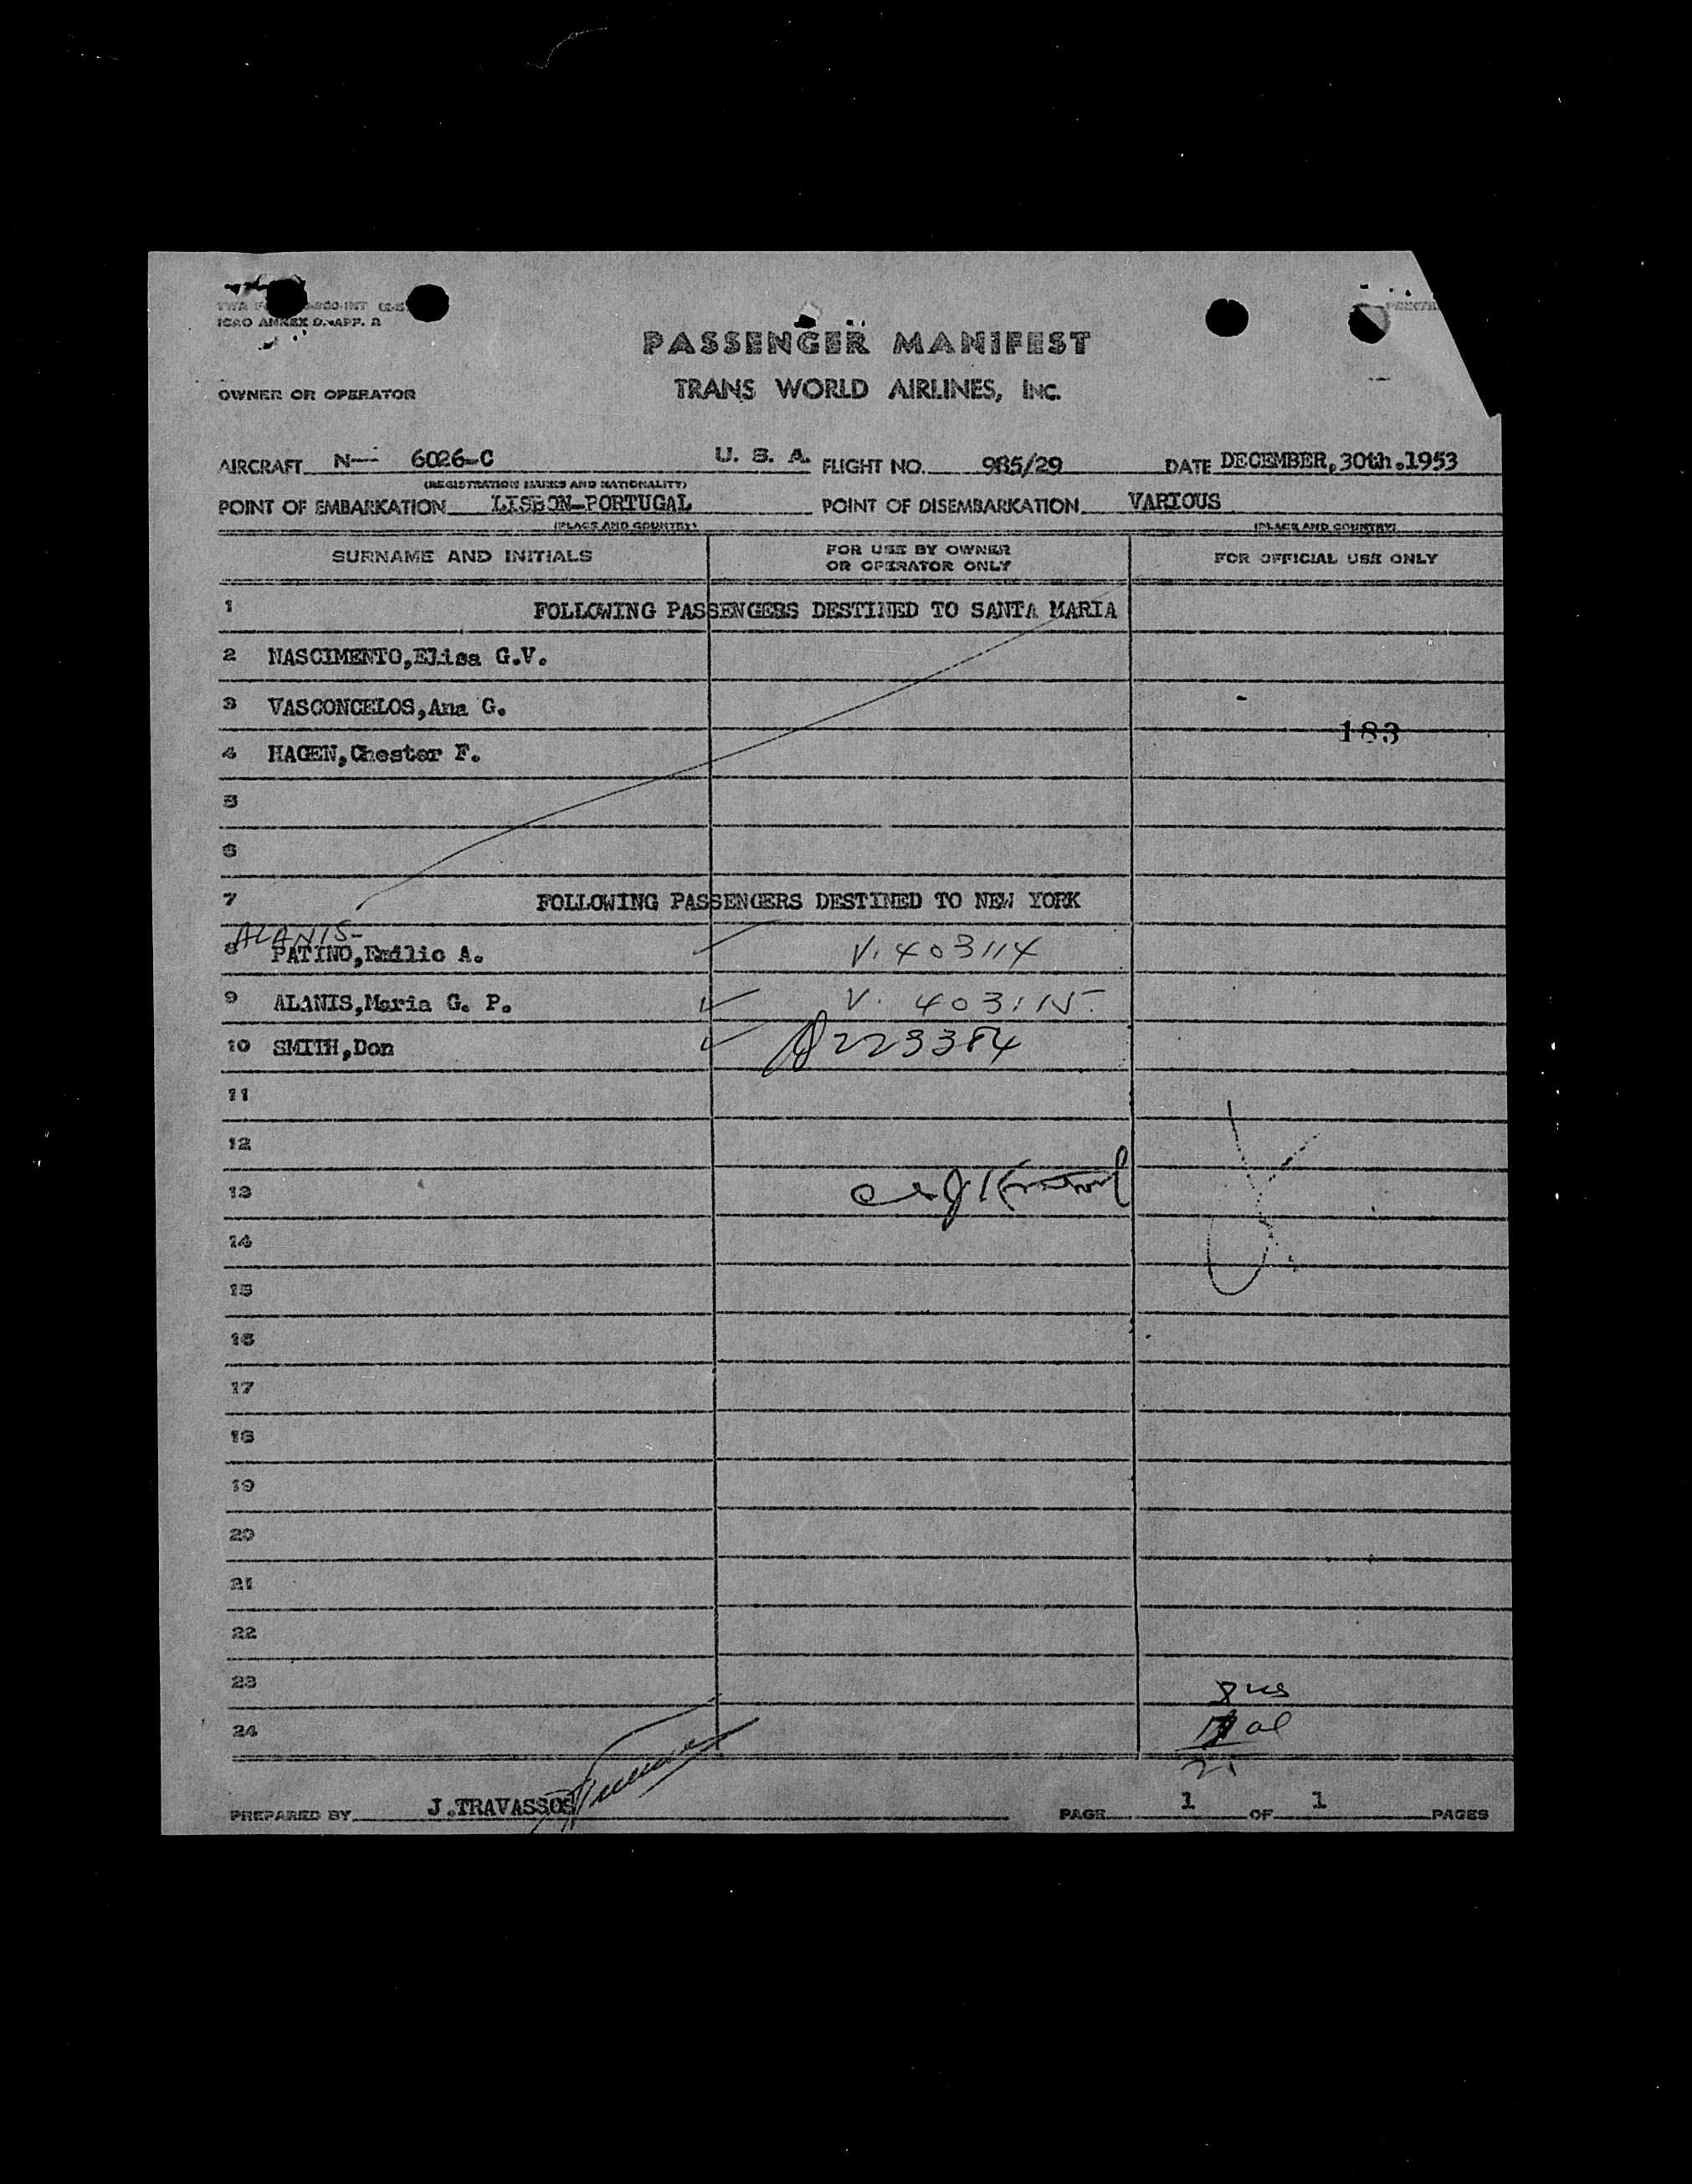 ICAO ANNEX 9, APP. 2
PASSENGER MANIFEST
OWNER OR OPERATOR TRANS WORLD AIRLINES, INC.
AIRCRAFT N- 6026-C U. S. A. FLIGHT NO. 985/29 DATE DECEMBER, 30th.1953
(REGISTRATION MARKS AND NATIONALITY)
POINT OF EMBARKATION LISBON-PORTUGAL POINT OF DISEMBARKATION VARIOUS
(PLACE AND COUNTRY) (PLACE AND COUNTRY)
SURNAME AND INITIALS FOR USE BY OWNER OR OPERATOR ONLY FOR OFFICIAL USE ONLY
1 FOLLOWING PASSENGERS DESTINED TO SANTA MARIA
2 NASCIMENTO,Elisa G.V.
3 VASCONCELOS,Ana G.
183
4 HAGEN,Chester F.
5
6
7 FOLLOWING PASSENGERS DESTINED TO NEW YORK
ALANIS-
8 PATINO,Emilio A. V. 403114
9 ALANIS,Maria G. P. V. 403115
10 SMITH,Don A223384
11
12
13
14
15
16
17
18
19
20
21
22
23 8 us
24 al
21
PREPARED BY J.TRAVASSOS PAGE 1 OF 1 PAGES